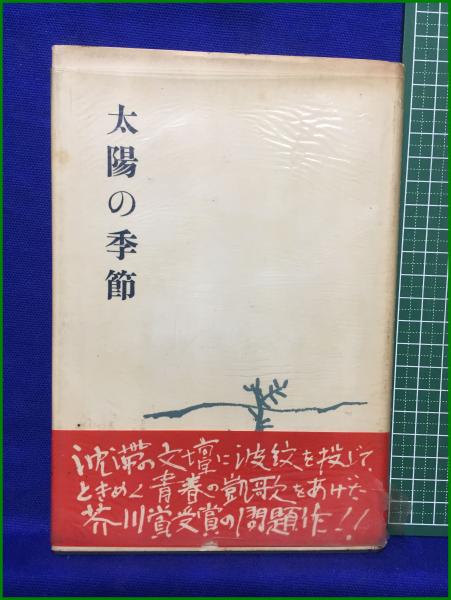 太陽の季節
沈滞の文壇に波紋を投じて、
ときめく青春の凱歌をあげた
芥川賞受賞の問題作!!